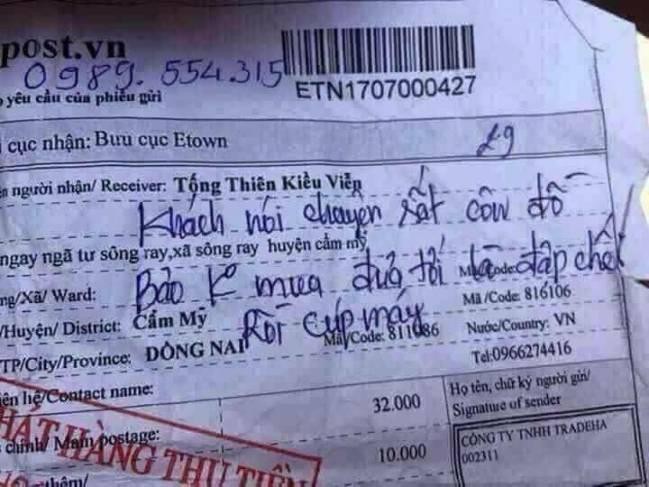 post.vn
0989.554.315
yêu cầu của phiếu gửi
ETN1707000427
cục nhận: Bưu cục Etown
29
người nhận/ Receiver: Tống Thiên Kiều Viễn
Khách nói chuyện rất côn đồ
ngay ngã tư sông ray,xã sông ray huyện cẩm mỹ
Bảo K mua đưa tới là đập chết
/Xã/ Ward:
Mã/Code: 816106
/Huyện/ District: Cẩm Mỹ
Rồi cúp máy
Mã/Code: 811086
Nước/Country: VN
TP/City/Province: ĐỒNG NAI
Tel:0966274416
hệ/Contact name:
32.000
Họ tên, chữ ký người gửi/
Signature of sender
chính/ Main postage:
10.000
CÔNG TY TNHH TRADEHA
002311
PHÁT HÀNG THU TIỀN
thêm/